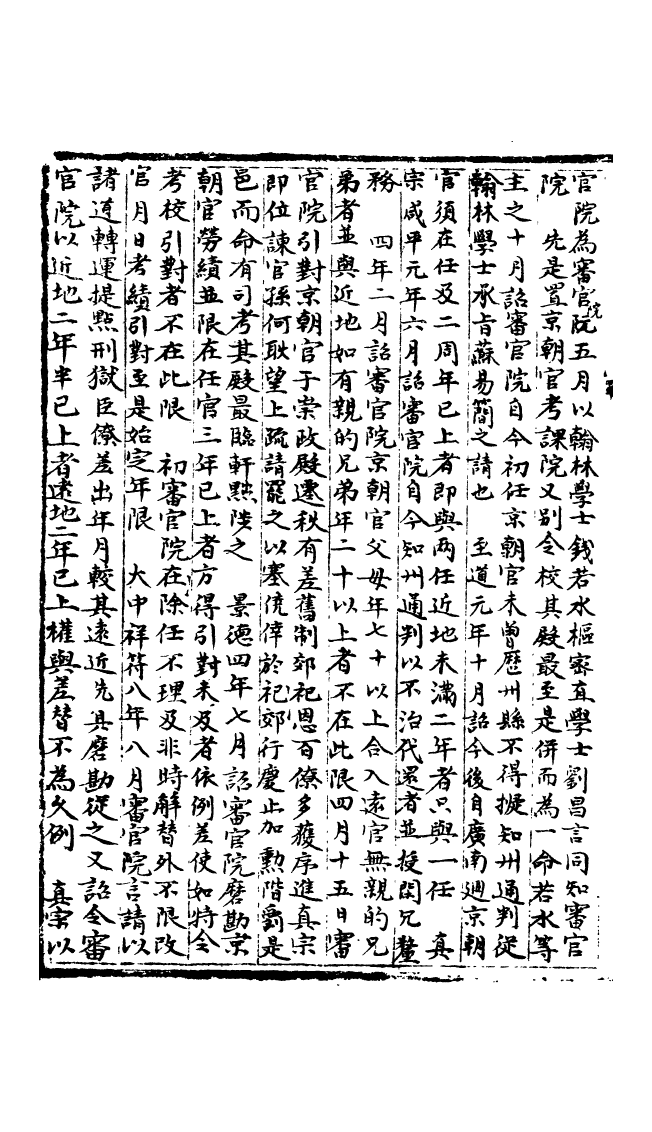 官院為審官院五月以翰林學士錢若水樞密直學士劉昌言同知審官
院　先是置京朝官考課院又別令校其殿最至是併而為一命若水等
主之十月詔審官院自今初任京朝官未曾歷州縣不得擬知州通判從
翰林學士承旨蘇易簡之請也　至道元年十月詔今後自廣南迴京朝
官須在任及二周年已上者即與兩任近地未滿二年者只與一任　真
宗咸平元年六月詔審官院自今知州通判以不治代還者並授閑冗釐
務　四年二月詔審官院京朝官父母年七十以上合入遠官無親的兄
弟者並與近地如有親的兄弟年二十以上者不在此限四月十五日審
官院引對京朝官于崇政殿遷秩有差舊制郊祀恩百僚多獲序進真宗
即位諫官孫何耿望上疏請罷之以塞僥倖於祀郊行慶止加勳階爵是
邑而命有司考其殿最臨軒黜陟之　景德四年七月詔審官院磨勘京
朝官勞績並限在任官三年已上者方得引對未及者依例差使如特令
考校引對者不在此限　初審官院在除任不理及非時解替外不限改
官月日考績引對至是始定年限　大中祥符八年八月審官院言請以
諸道轉運提點刑獄臣僚差出年月較其遠近先具磨勘從之又詔令審
官院以近地二年半已上者遠地二年已上權與差替不為久例　真宗以